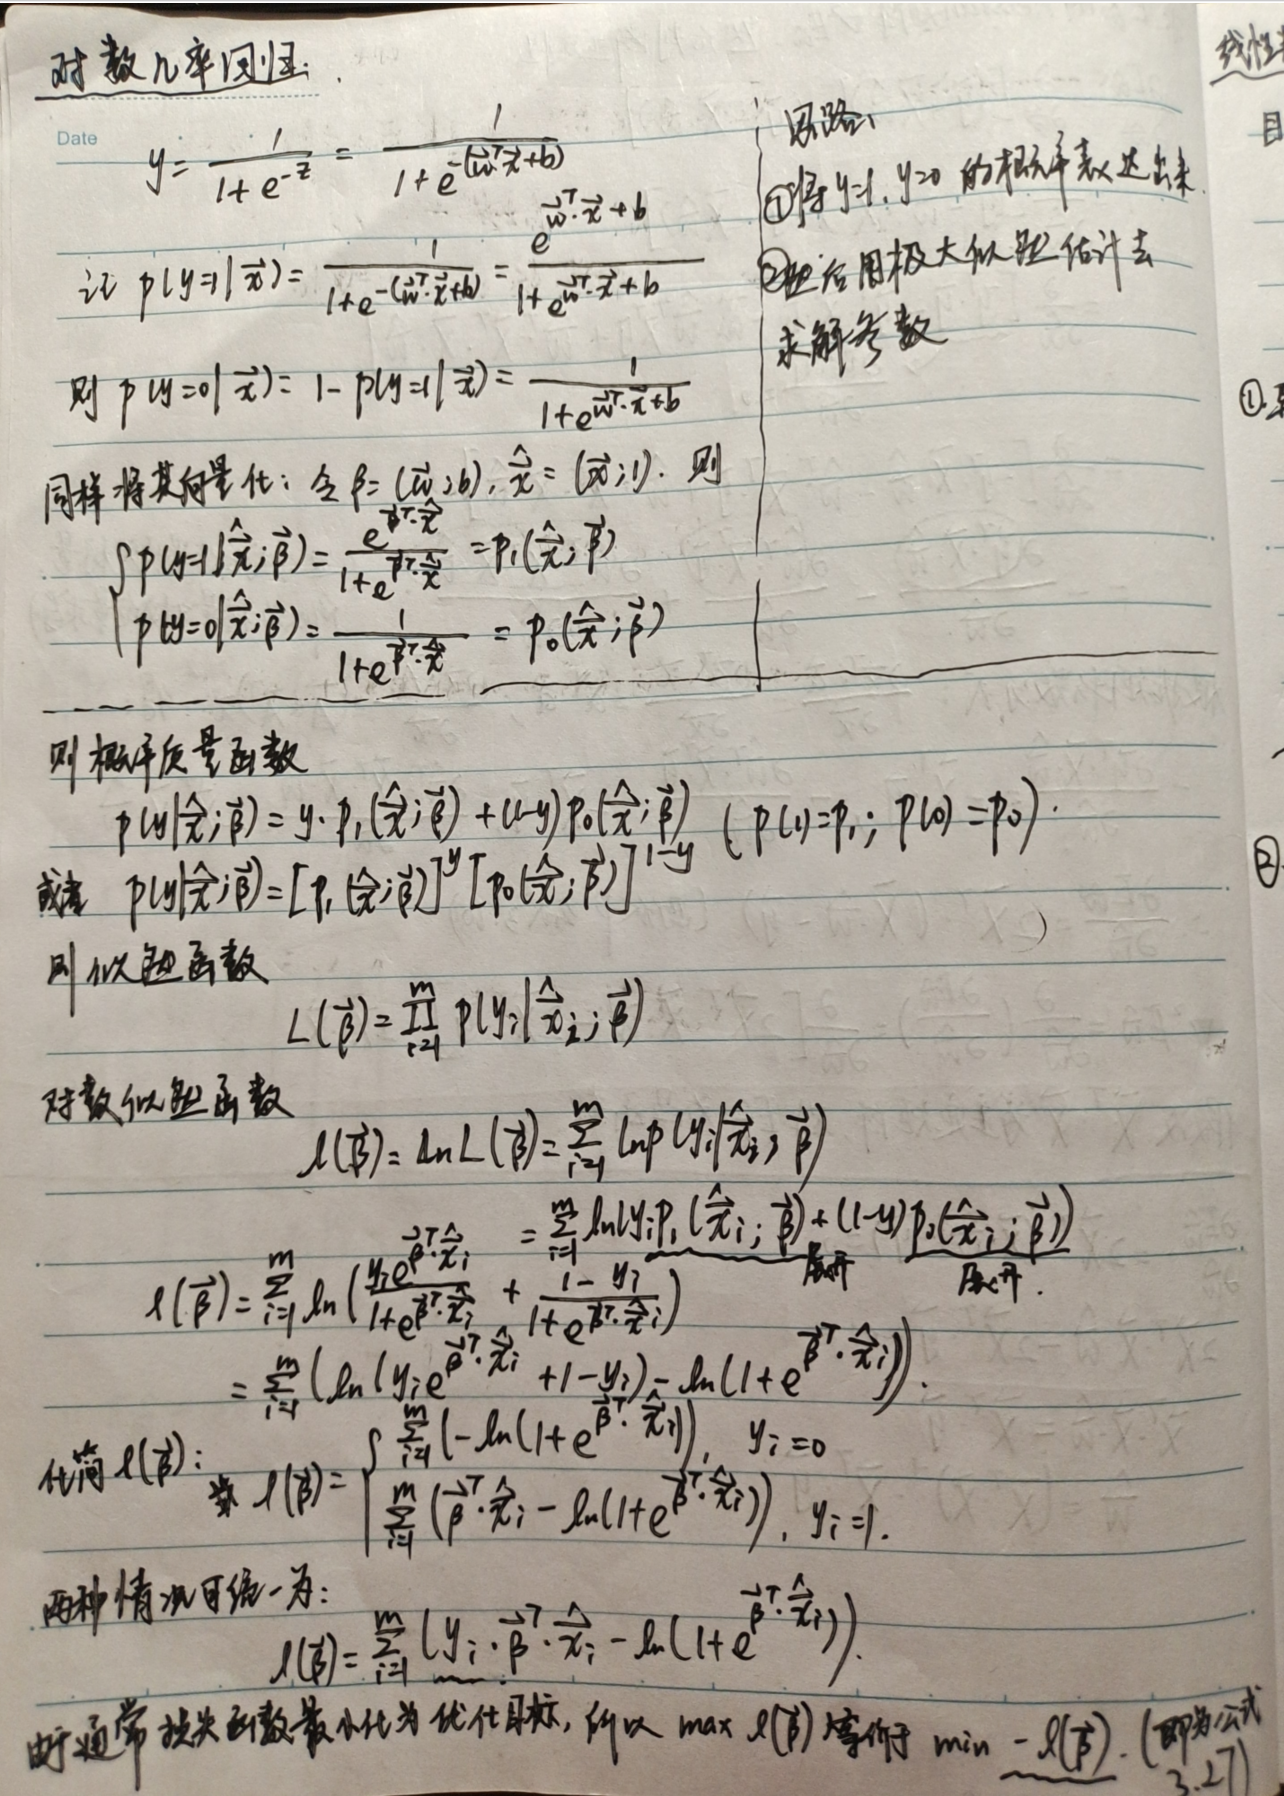 对数几率回归:
Date
y = 1/(1+e^{-z}) = 1/(1+e^{-(w⃗ᵀ·x⃗+b)})
记 p(y=1|x⃗) = 1/(1+e^{-(w⃗ᵀ·x⃗+b)}) = e^{w⃗ᵀ·x⃗+b}/(1+e^{w⃗ᵀ·x⃗+b})
则 p(y=0|x⃗) = 1-p(y=1|x⃗) = 1/(1+e^{w⃗ᵀ·x⃗+b})
思路:
①将y=1, y=0 的概率表达出来.
②然后用极大似然估计去
求解参数
同样将其向量化: 令 β=(w⃗;b), x⃗̂=(x⃗;1). 则
{ p(y=1|x⃗̂;β⃗) = e^{β⃗ᵀ·x⃗̂}/(1+e^{β⃗ᵀ·x⃗̂}) = p₁(x⃗̂;β⃗)
p(y=0|x⃗̂;β⃗) = 1/(1+e^{β⃗ᵀ·x⃗̂}) = p₀(x⃗̂;β⃗)
则概率质量函数
p(y|x⃗̂;β⃗) = y·p₁(x⃗̂;β⃗)+(1-y)p₀(x⃗̂;β⃗) (p(1)=p₁; p(0)=p₀).
或者 p(y|x⃗̂;β⃗) = [p₁(x⃗̂;β⃗)]^y [p₀(x⃗̂;β⃗)]^{1-y}
则似然函数
L(β⃗) = ∏_{i=1}^{m} p(y_i|x⃗̂_i;β⃗)
对数似然函数
l(β⃗) = ln L(β⃗) = ∑_{i=1}^{m} ln p(y_i|x⃗̂_i;β⃗)
= ∑_{i=1}^{m} ln(y_i p₁(x⃗̂_i;β⃗)+(1-y)p₀(x⃗̂_i;β⃗))
展开 展开.
l(β⃗) = ∑_{i=1}^{m} ln(y_i e^{β⃗ᵀ·x⃗̂_i}/(1+e^{β⃗ᵀ·x⃗̂_i}) + (1-y_i)/(1+e^{β⃗ᵀ·x⃗̂_i}))
= ∑_{i=1}^{m} (ln(y_i e^{β⃗ᵀ·x⃗̂_i}+1-y_i)-ln(1+e^{β⃗ᵀ·x⃗̂_i})).
化简 l(β⃗): 当 l(β⃗) = { ∑_{i=1}^{m} (-ln(1+e^{β⃗ᵀ·x⃗̂_i})), y_i=0
∑_{i=1}^{m} (β⃗ᵀ·x⃗̂_i-ln(1+e^{β⃗ᵀ·x⃗̂_i})), y_i=1.
两种情况可统一为:
l(β⃗) = ∑_{i=1}^{m} (y_i·β⃗ᵀ·x⃗̂_i-ln(1+e^{β⃗ᵀ·x⃗̂_i})).
由于通常损失函数最小化为优化目标, 所以 max l(β⃗) 等价于 min -l(β⃗). (即为公式
3.27)
线性
目
①.
②.